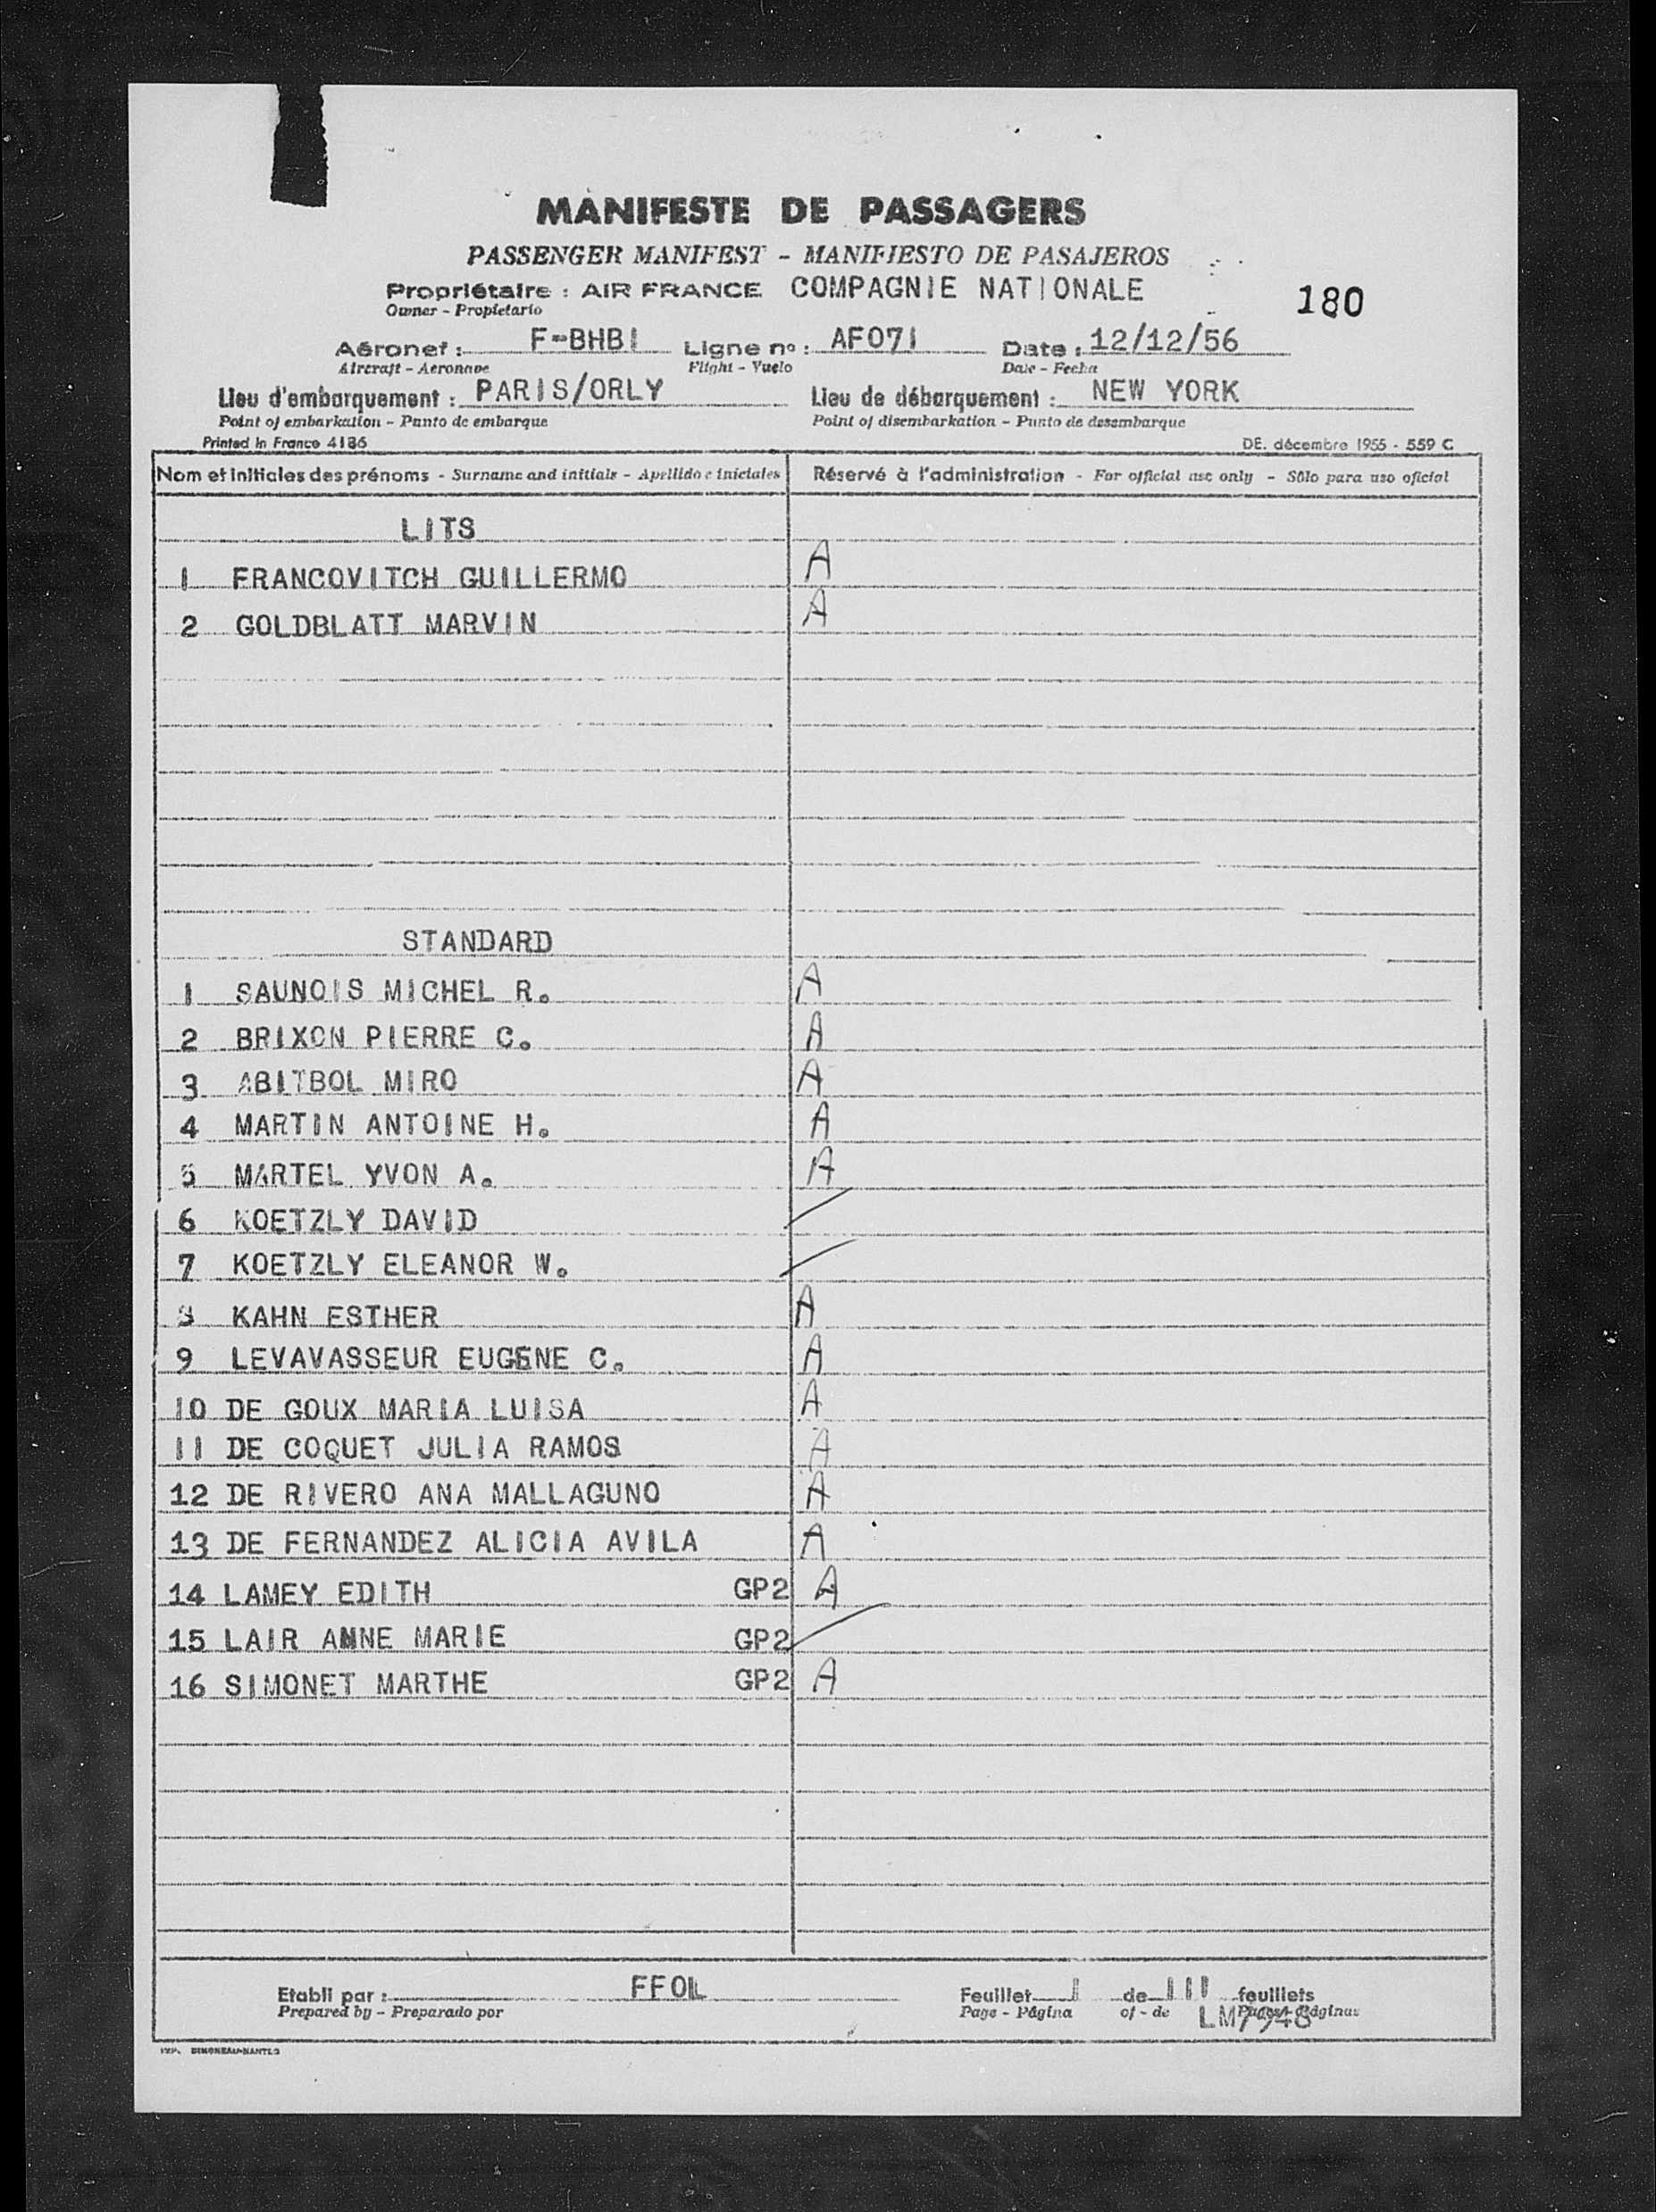 MANIFESTE DE PASSAGERS
PASSENGER MANIFEST - MANIFIESTO DE PASAJEROS
Propriétaire : AIR FRANCE COMPAGNIE NATIONALE
180
Owner - Propietario
Aéronef : F-BHBI Ligne nº : AF071 Date : 12/12/56
Aircraft - Aeronave Flight - Vuelo Date - Fecha
Lieu d'embarquement : PARIS/ORLY Lieu de débarquement : NEW YORK
Point of embarkation - Punto de embarque Point of disembarkation - Punto de desembarque
Printed in France 4186 DE. décembre 1955 - 559 C
Nom et initiales des prénoms - Surname and initials - Apellido e iniciales Réservé à l'administration - For official use only - Sólo para uso oficial
LITS
1 FRANCOVITCH GUILLERMO A
2 GOLDBLATT MARVIN A
STANDARD
1 SAUNOIS MICHEL R. A
2 BRIXON PIERRE C. A
3 ABITBOL MIRO A
4 MARTIN ANTOINE H. A
5 MARTEL YVON A. A
6 KOETZLY DAVID
7 KOETZLY ELEANOR W.
8 KAHN ESTHER A
9 LEVAVASSEUR EUGENE C. A
10 DE GOUX MARIA LUISA A
11 DE COQUET JULIA RAMOS A
12 DE RIVERO ANA MALLAGUNO A
13 DE FERNANDEZ ALICIA AVILA A
14 LAMEY EDITH GP2 A
15 LAIR ANNE MARIE GP2
16 SIMONET MARTHE GP2 A
Etabli par : FFOLL Feuillet I de III feuillets
Prepared by - Preparado por Page - Página of - de Pages - Páginas
LM7948
IMP. SIMONEAU-NANTES